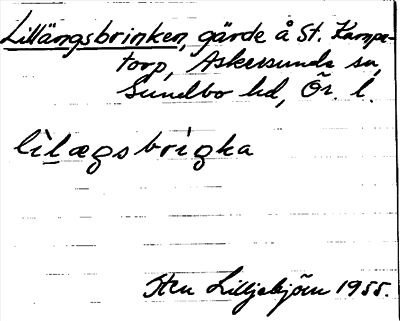 Lillängsbrinken, gärde å St. Kampe-
torp, Askersunds sn,
Sundbo hd, Ör. l.
lìlægsbrìgka
Sten Lilljebjörn 1955.